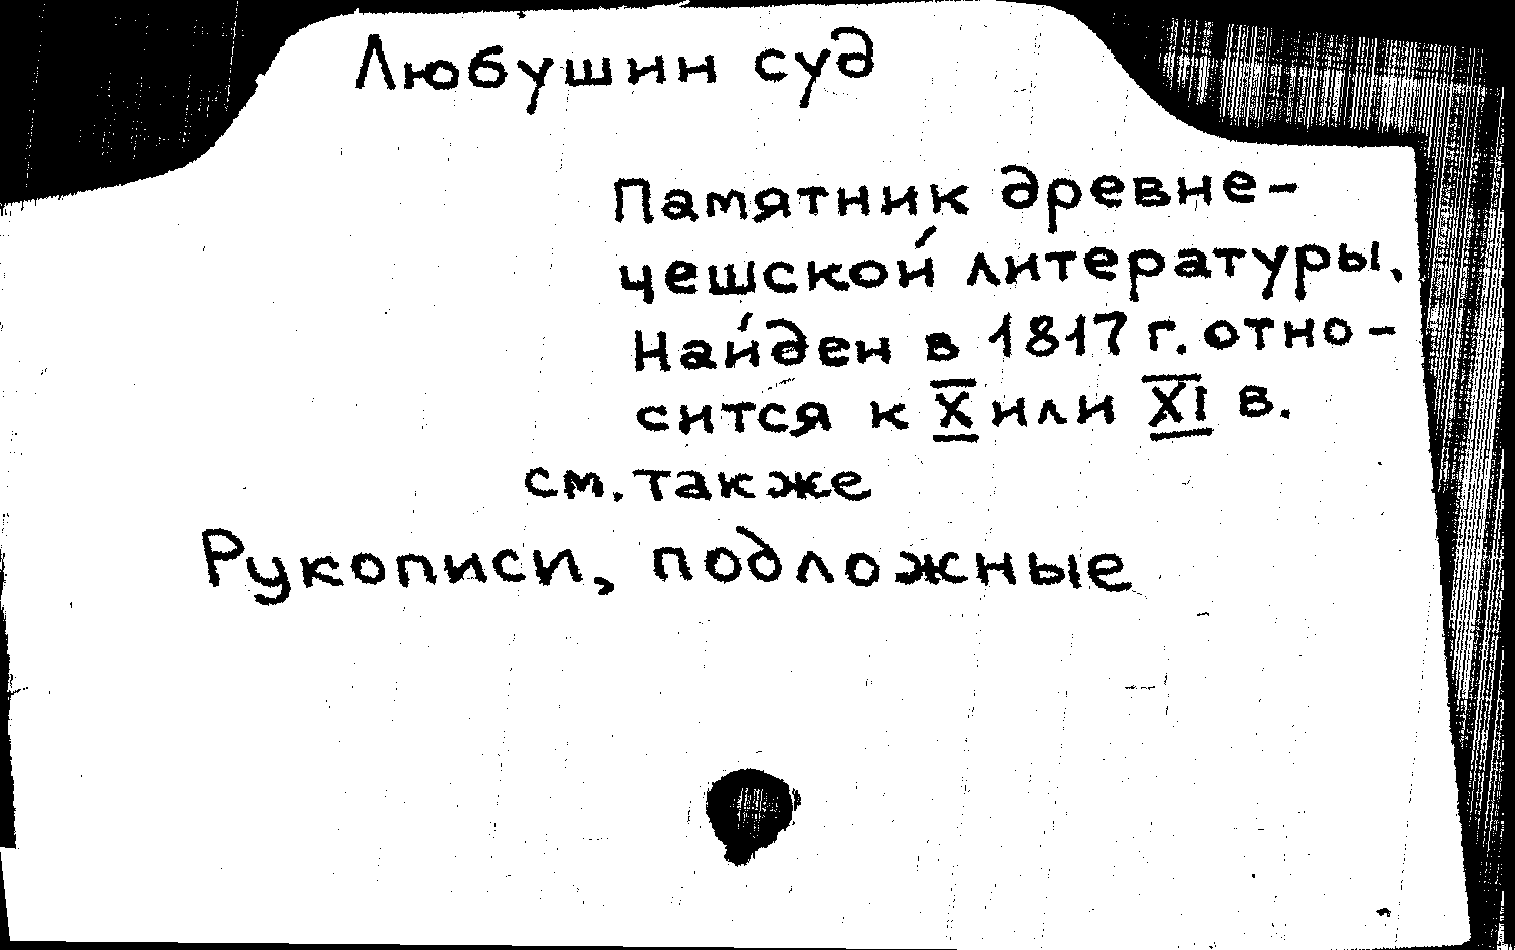 Любушин суд
Памятник древне-
чешской литературы.
Найден в 1817 г. отно-
сится к X или XI в.
см. также
Рукописи, подложные